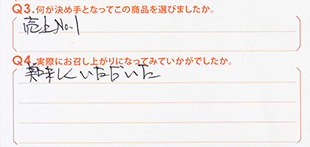 Q3.何が決め手となってこの商品を選びましたか。
売上No.1
Q4.実際にお召し上がりになってみていかがでしたか。
美味しくいただいた